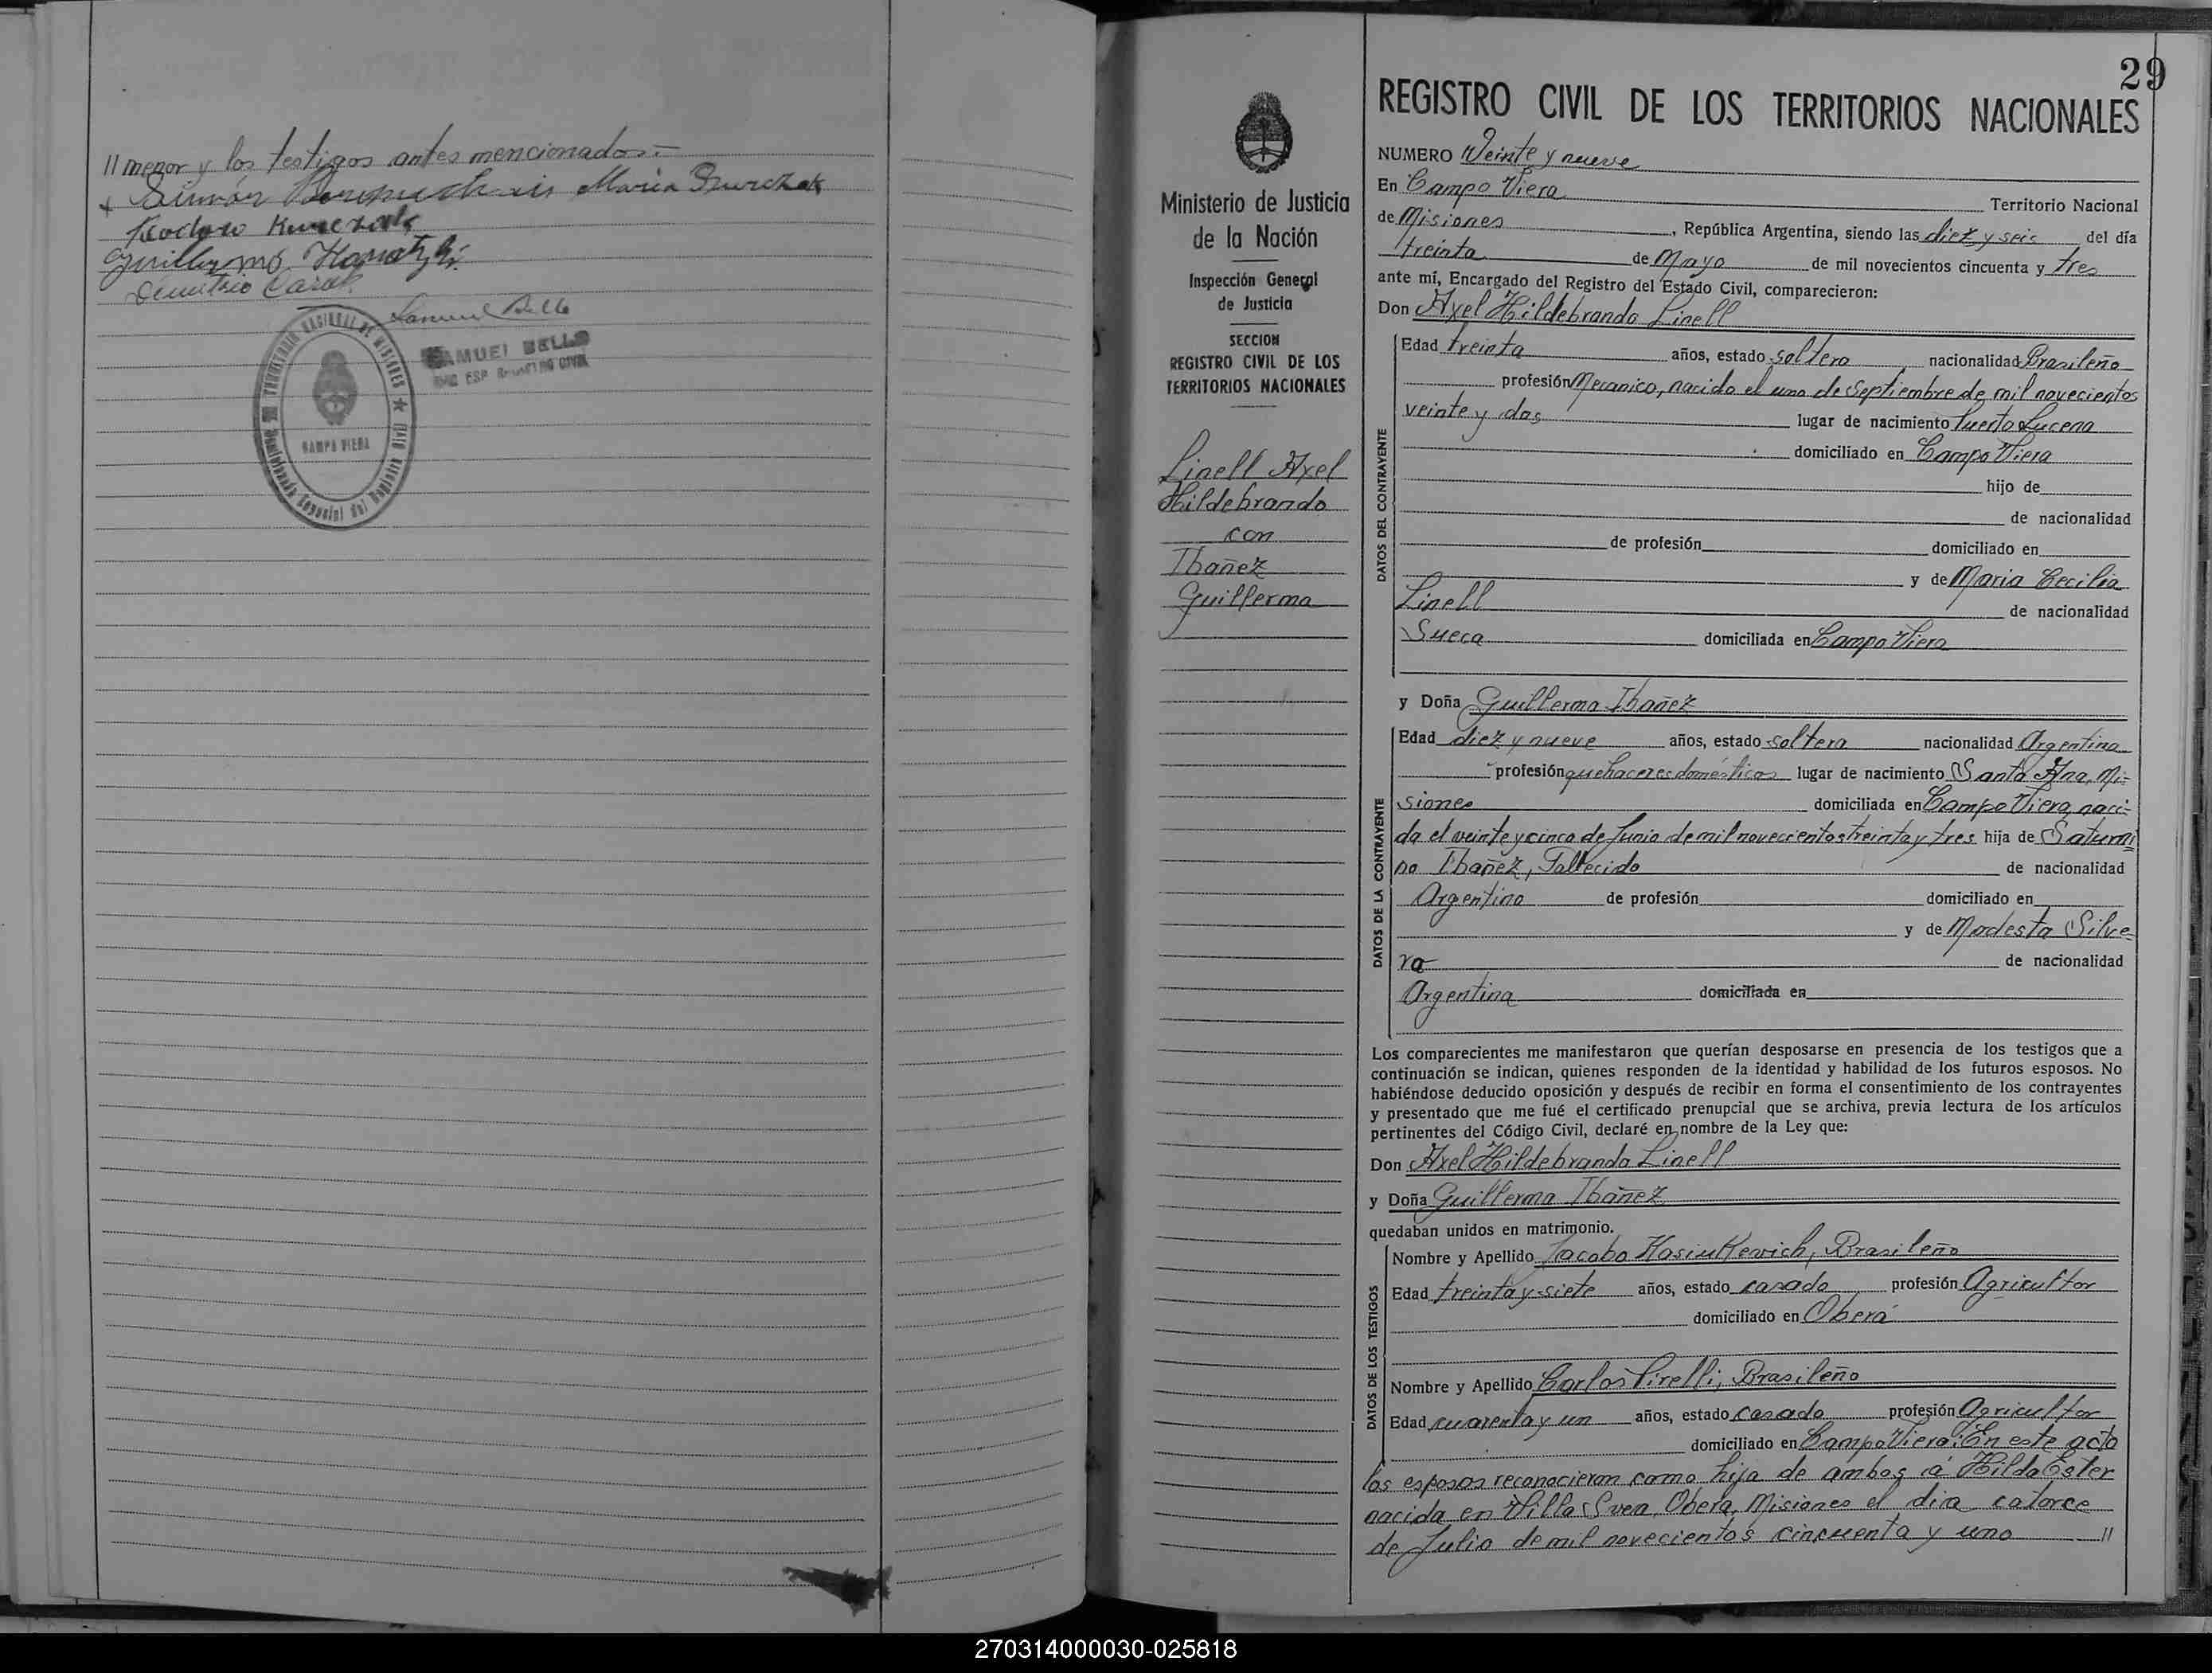 // menor y los testigos antes mencionados.-
Simón María Kurczak
Teodoro Kurczak
Guillermo
Demitrio
Samuel Bello
TERRITORIO NACIONAL DE MISIONES
CAMPO VIERA
SAMUEL BELLO
ENC ESP REGISTRO CIVIL
29
REGISTRO CIVIL DE LOS TERRITORIOS NACIONALES
Ministerio de Justicia
de la Nación
Inspección General
de Justicia
SECCION
REGISTRO CIVIL DE LOS
TERRITORIOS NACIONALES
Linell Axel
Hildebrando
con
Ibañez
Guillerma
NUMERO Veinte y nueve
En Campo Viera Territorio Nacional
de Misiones, República Argentina, siendo las diez y seis del día
treinta de Mayo de mil novecientos cincuenta y tres
ante mí, Encargado del Registro del Estado Civil, comparecieron:
Don Axel Hildebrando Linell
DATOS DEL CONTRAYENTE
Edad treinta años, estado soltero nacionalidad Brasileño
profesión Mecanico, nacido el uno de Septiembre de mil novecientos
veinte y dos lugar de nacimiento Puerto Lucena
domiciliado en Campo Viera
hijo de
de nacionalidad
de profesión domiciliado en
y de Maria Cecilia
Linell de nacionalidad
Sueca domiciliada en Campo Viera
y Doña Guillerma Ibañez
DATOS DE LA CONTRAYENTE
Edad diez y nueve años, estado soltera nacionalidad Argentina
profesión quehaceres domésticos lugar de nacimiento Santa Ana, Mi-
siones domiciliada en Campo Viera, naci-
da el veinte y cinco de Junio de mil novecientos treinta y tres hija de Saturni
no Ibañez, Fallecido de nacionalidad
Argentino de profesión domiciliado en
y de Modesta Silve-
ra de nacionalidad
Argentina domiciliada en
Los comparecientes me manifestaron que querían desposarse en presencia de los testigos que a
continuación se indican, quienes responden de la identidad y habilidad de los futuros esposos. No
habiéndose deducido oposición y después de recibir en forma el consentimiento de los contrayentes
y presentado que me fué el certificado prenupcial que se archiva, previa lectura de los artículos
pertinentes del Código Civil, declaré en nombre de la Ley que:
Don Axel Hildebrando Linell
y Doña Guillerma Ibañez
quedaban unidos en matrimonio.
DATOS DE LOS TESTIGOS
Nombre y Apellido Jacobo Kasiukevich, Brasileño
Edad treinta y siete años, estado casado profesión Agricultor
domiciliado en Oberá
Nombre y Apellido Carlos Pirelli, Brasileño
Edad cuarenta y un años, estado casado profesión Agricultor
domiciliado en Campo Viera. En este acto
los esposos reconocieron como hija de ambos a Hilda Ester
nacida en Villa Svea, Oberá, Misiones el día catorce
de Julio de mil novecientos cincuenta y uno //
270314000030-025818